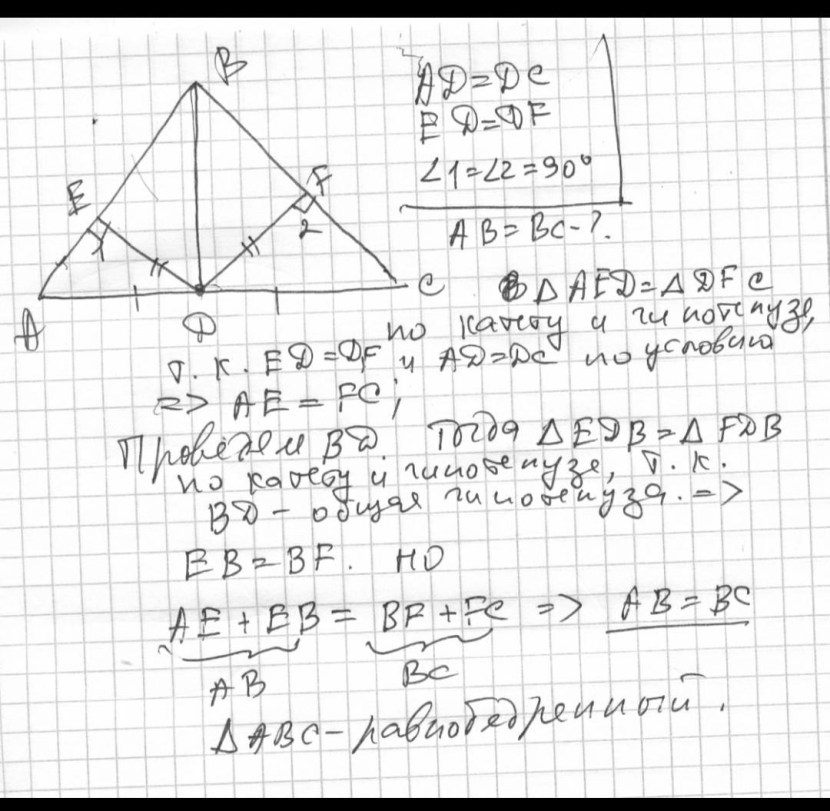 B
E
F
1
2
A
D
C
AD=DC
ED=DF
∠1=∠2=90°
AB=BC-?.
В ΔAED=ΔDFC
по катету и гипотенузе,
т.к. ED=DF и AD=DC по условию
=> AE=FC;
Проведём BD. Тогда ΔEDB=ΔFDB
по катету и гипотенузе, т.к.
BD - общая гипотенуза. =>
EB=BF. но
AE+EB=BF+FC => AB=BC
AB BC
ΔABC-равнобедренный.